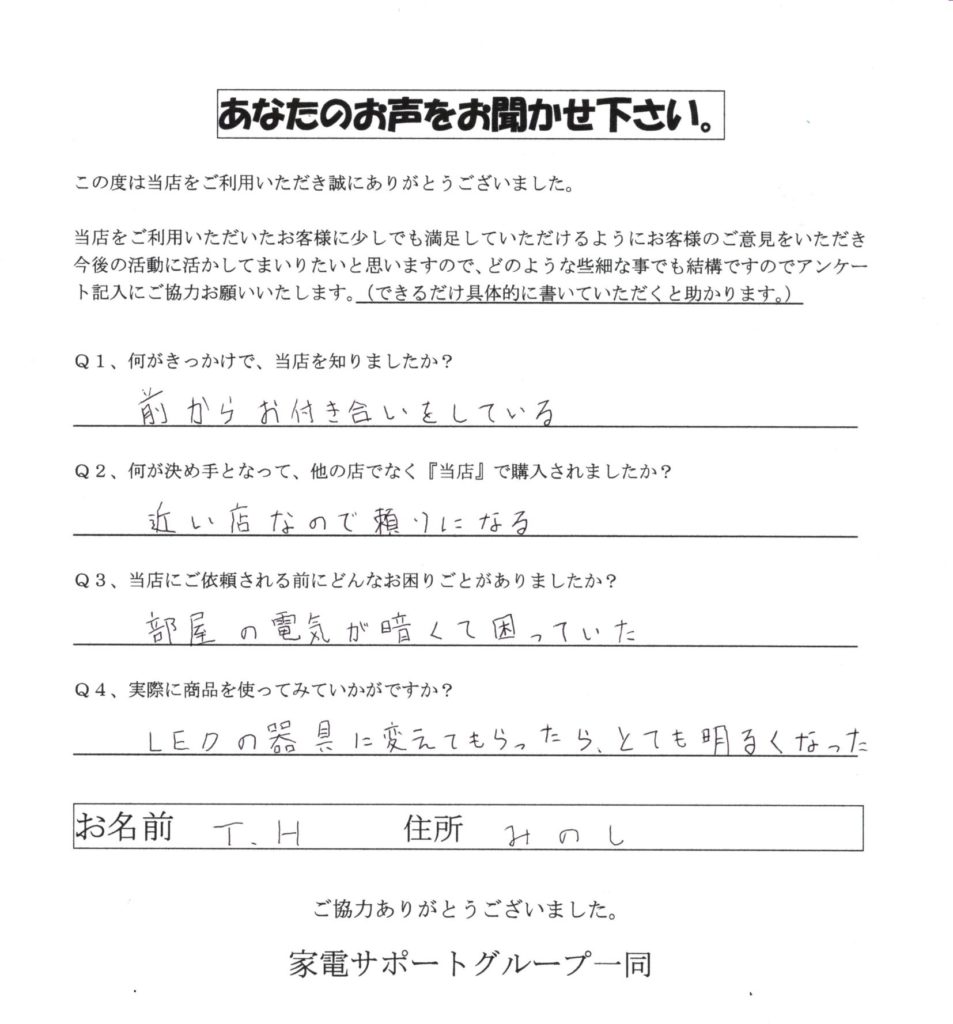 あなたのお声をお聞かせ下さい。
この度は当店をご利用いただき誠にありがとうございました。
当店をご利用いただいたお客様に少しでも満足していただけるようにお客様のご意見をいただき
今後の活動に活かしてまいりたいと思いますので、どのような些細な事でも結構ですのでアンケー
ト記入にご協力お願いいたします。（できるだけ具体的に書いていただくと助かります。）
Ｑ１、何がきっかけで、当店を知りましたか？
前からお付き合いをしている
Ｑ２、何が決め手となって、他の店でなく『当店』で購入されましたか？
近い店なので頼りになる
Ｑ３、当店にご依頼される前にどんなお困りごとがありましたか？
部屋の電気が暗くて困っていた
Ｑ４、実際に商品を使ってみていかがですか？
LEDの器具に変えてもらったら、とても明るくなった
お名前 T.H 住所 みのし
ご協力ありがとうございました。
家電サポートグループ一同